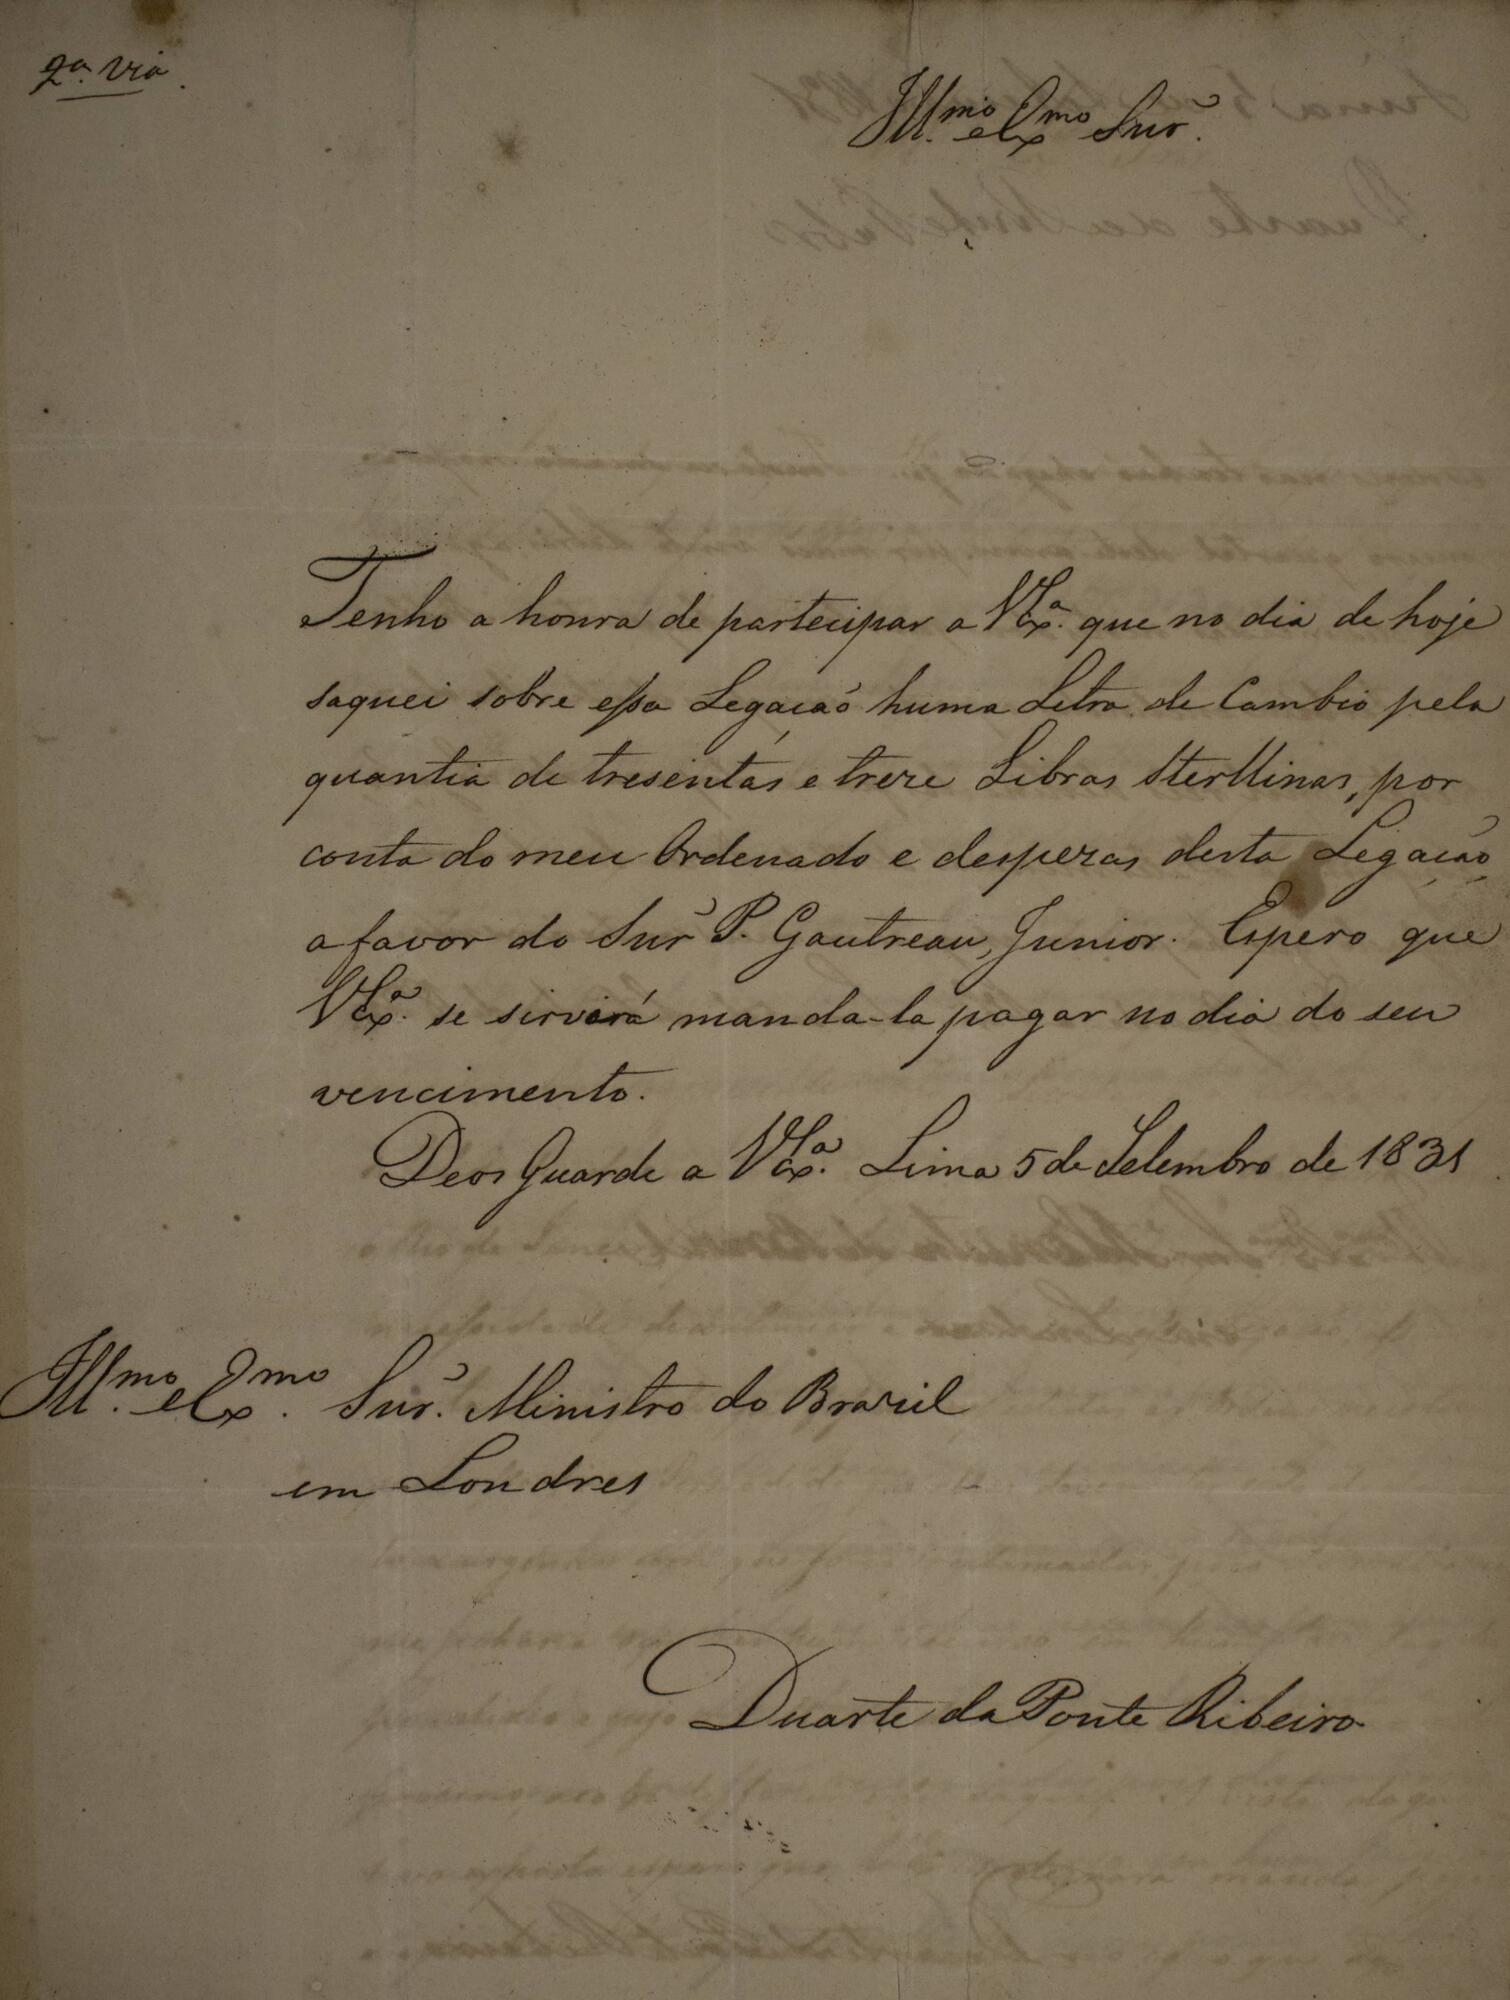 2.ª via.
Ill.mo e Ex.mo Snr.
Tenho a honra de partecipar a V.Ex.ª que no dia de hoje
saquei sobre essa Legação huma Letra de Cambio pela
quantia de tresentas e treze Libras Sterllinas, por
conta do meu Ordenado e despezas desta Legação,
a favor do Snr P. Gautreau, Junior. Espero que
V.Ex.ª se sirvirá manda-la pagar no dia do seu
vencimento.
Deos Guarde a V.Ex.ª Lima 5 de Setembro de 1831
Ill.mo e Ex.mo Snr. Ministro do Brazil
em Londres
Duarte da Ponte Ribeiro